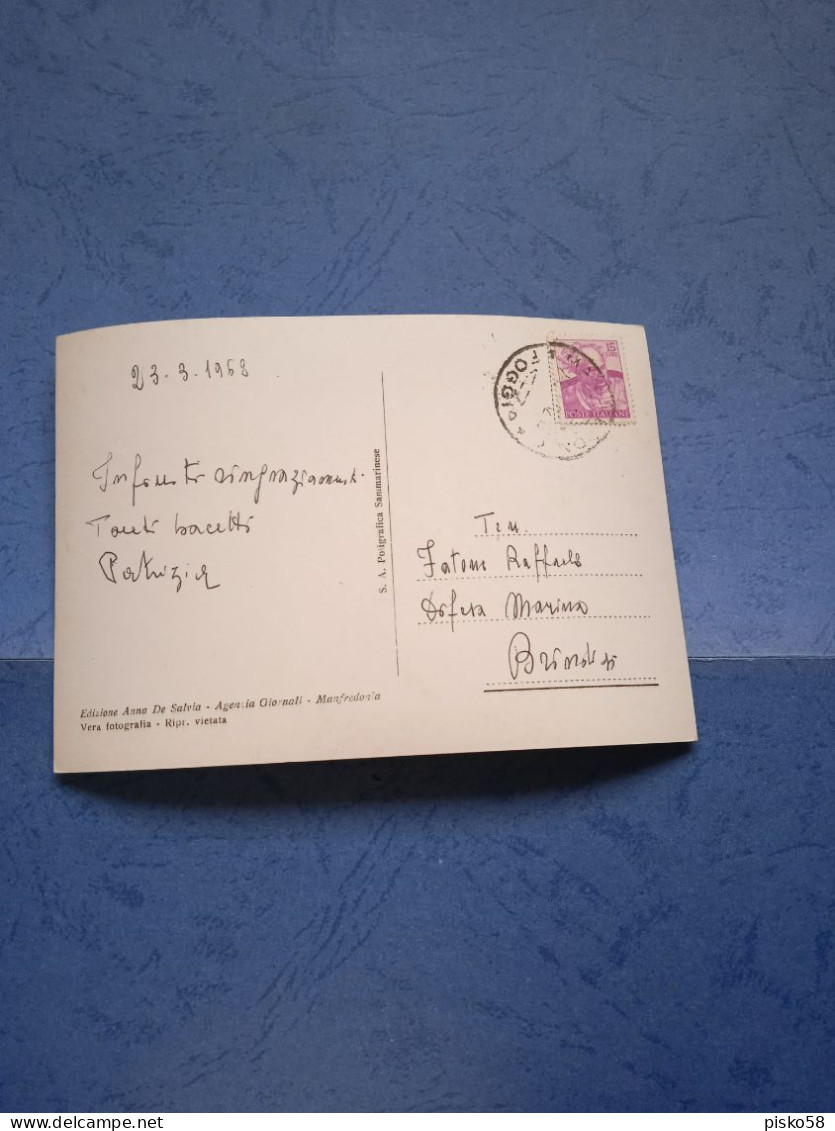 23.3.1963
Infiniti ringraziamenti
Tanti bacetti
Patrizia
S. A. Poligrafica Sammarinese
Edizione Anna De Salvia - Agenzia Giornali - Manfredonia
Vera fotografia - Ripr. vietata
FOGGIA
15
POSTE ITALIANE
Ten.
Fatone Raffaele
Difesa Marina
Brindisi
delcampe.net
pisko58